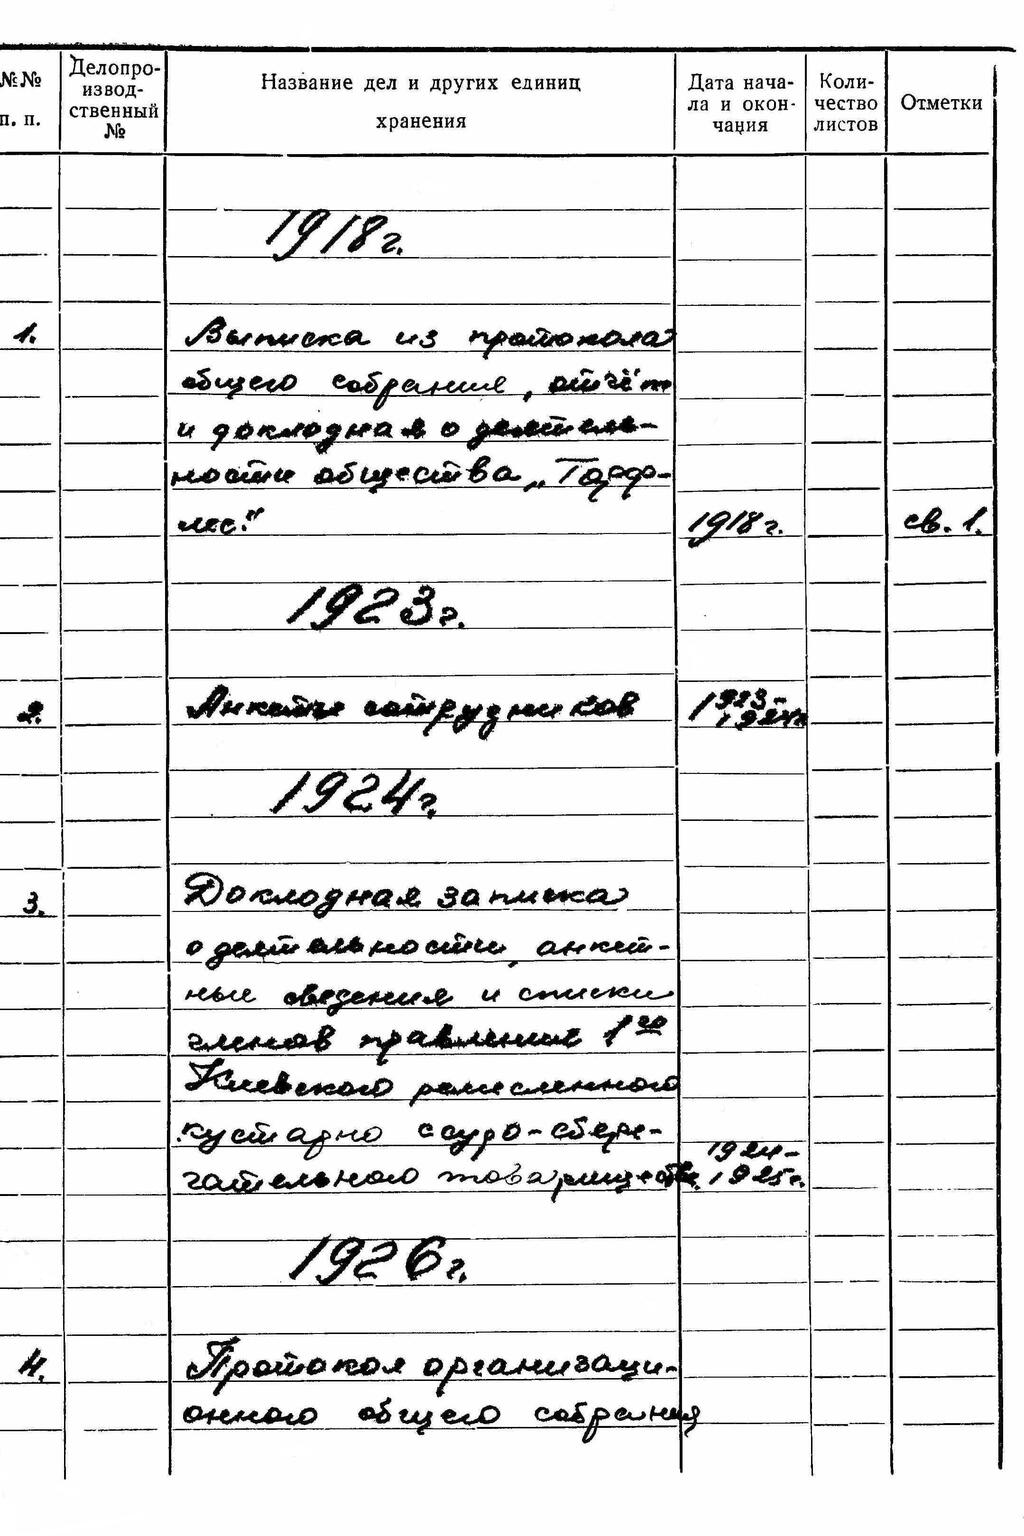 №№ п. п.
Делопро-
извод-
ственный
№
Название дел и других единиц
хранения
Дата нача-
ла и окон-
чания
Коли-
чество
листов
Отметки
1918 г.
1. Выписка из протокола
общего собрания, отчёт
и докладная о деятель-
ности общества „Торф-
лес." 1918 г. св. 1.
1923 г.
2. Анкеты сотрудников 1923-
1924 г.
1924 г.
3. Докладная записка
о деятельности, анкет-
ные сведения и списки
членов правления 1го
Киевского ремесленного
кустарно ссудо-сбере-
гательного товарищества. 1924-
1925 г.
1926 г.
4. Протокол организаци-
онного общего собрания